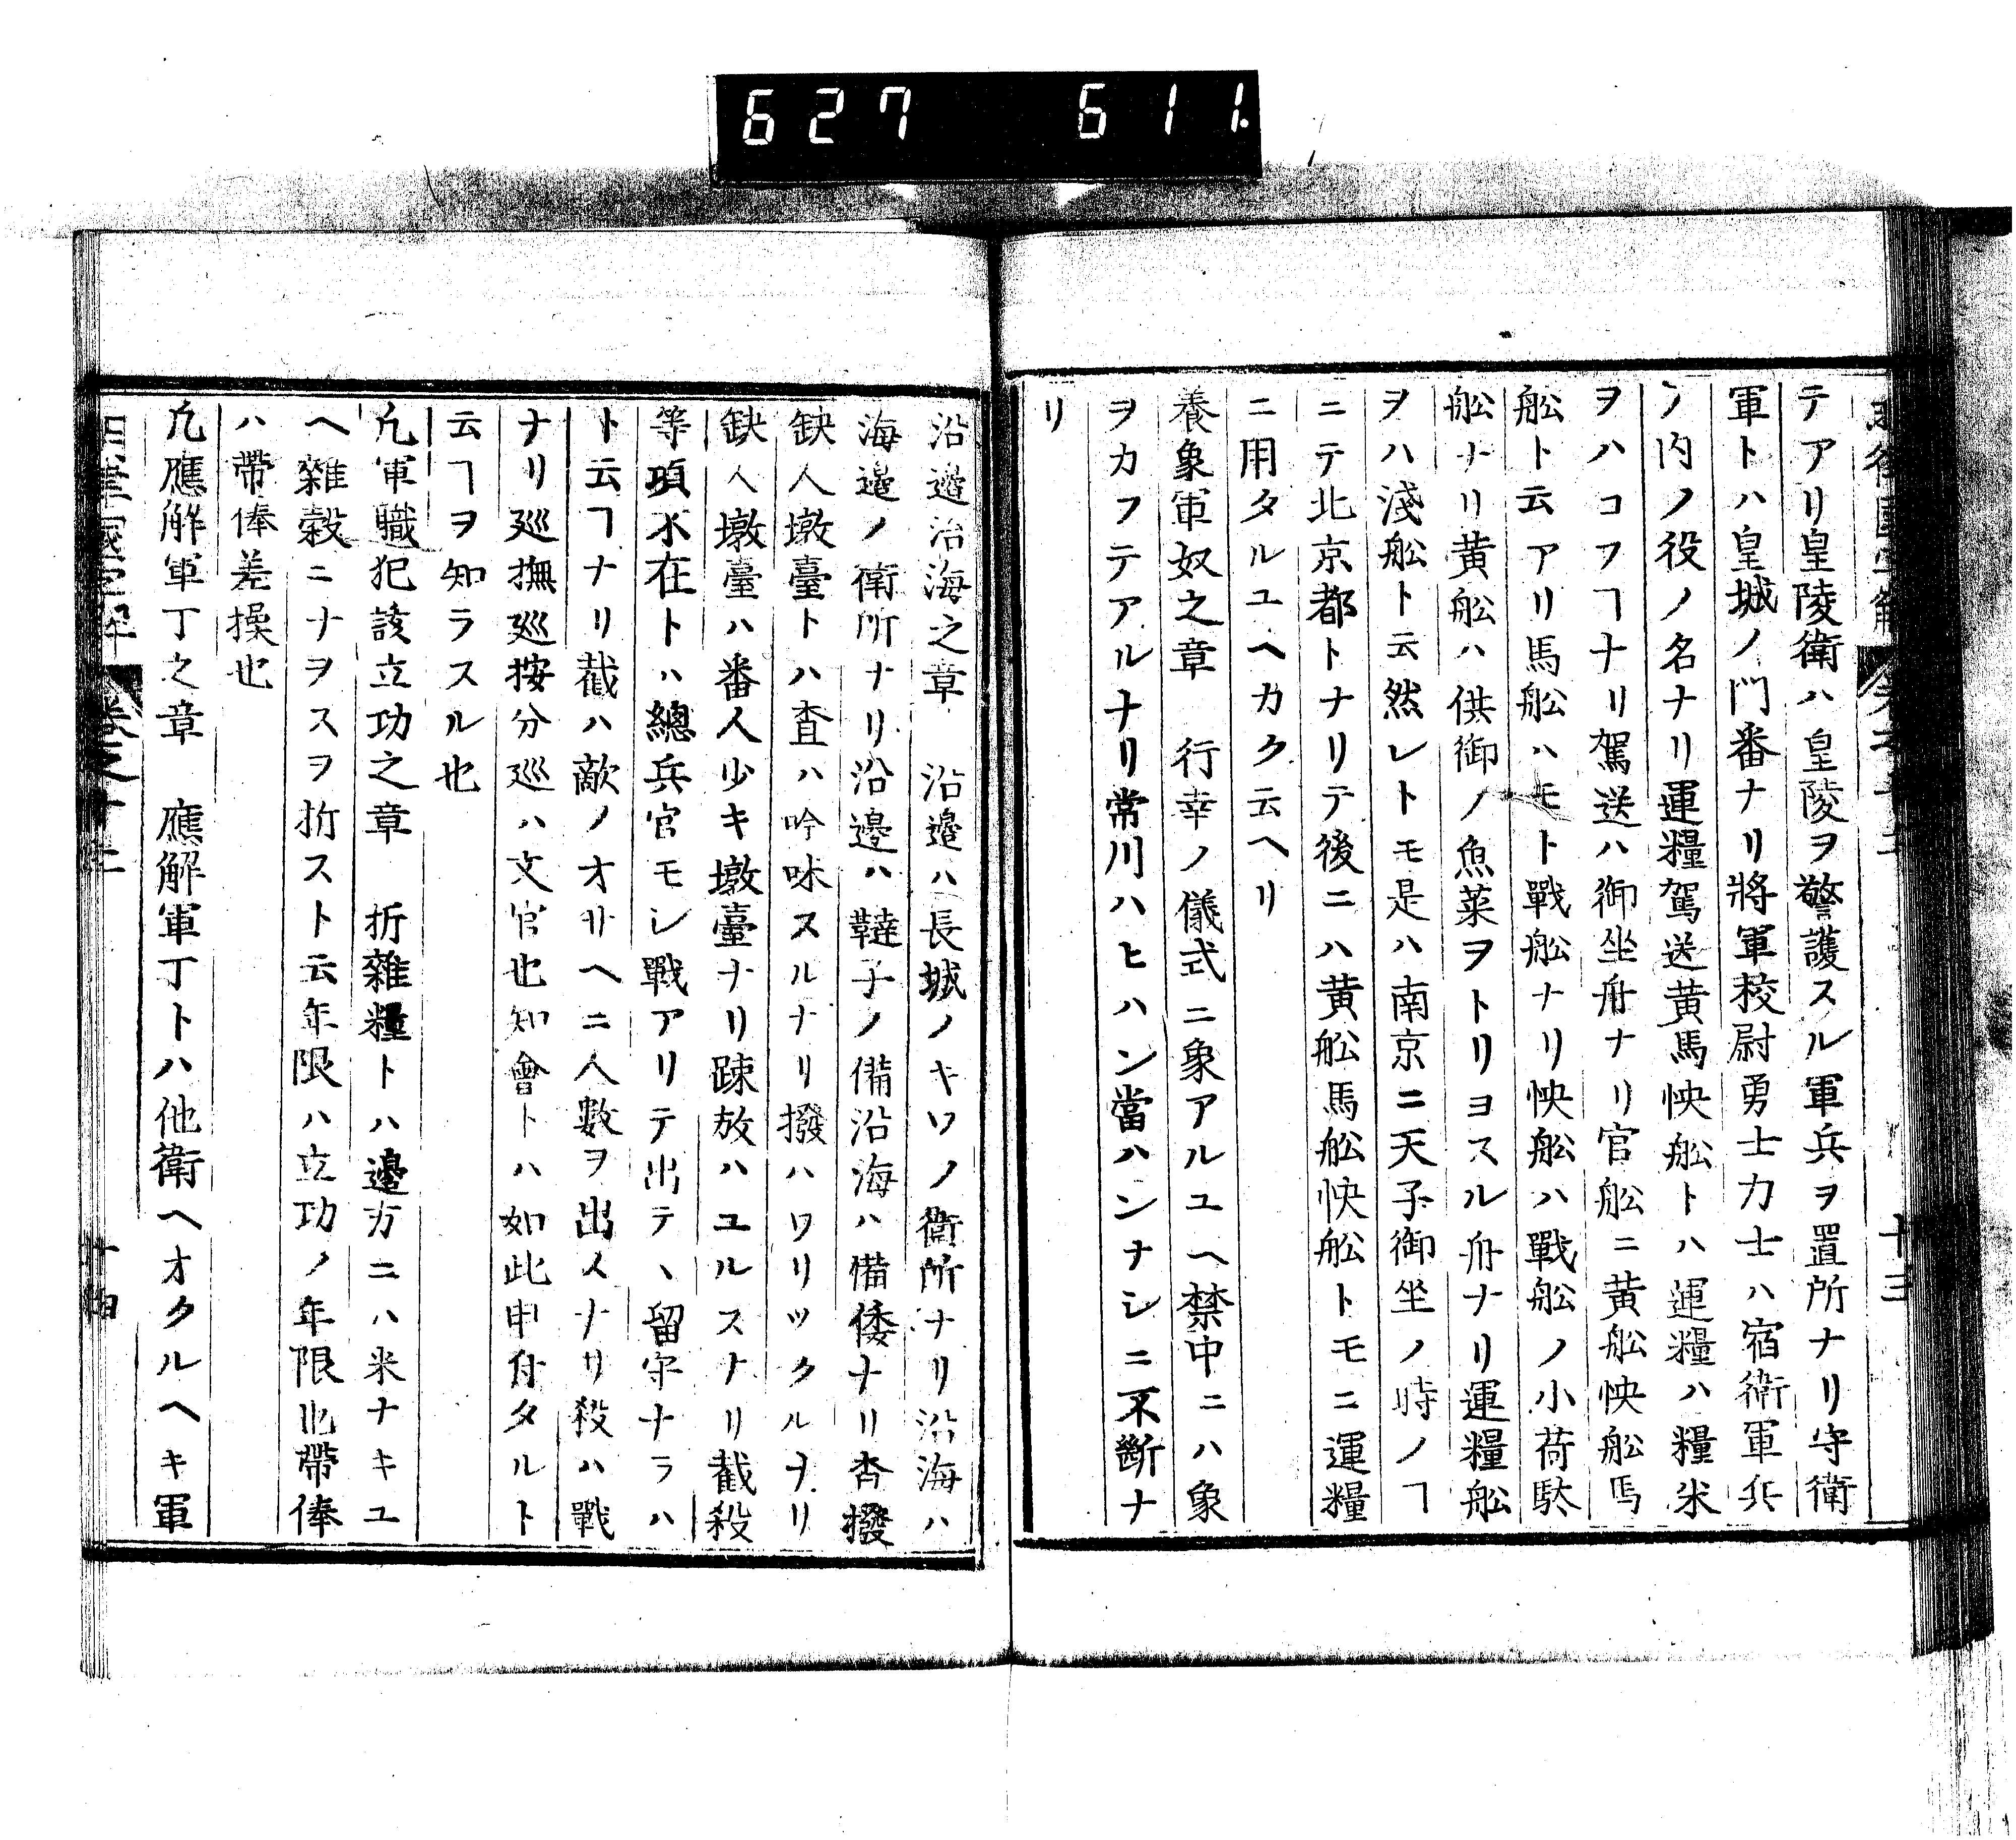 627 611
テアリ皇陵衛ハ皇陵ヲ警護スル軍兵ヲ置所ナリ守衛
軍トハ皇城ノ門番ナリ將軍校尉勇士力士ハ宿衛軍兵
ノ内ノ役ノ名ナリ運糧駕送黄馬快舩トハ運糧ハ糧米
ヲハコフヿナリ駕送ハ御坐舟ナリ官舩ニ黄舩快舩馬
舩ト云アリ馬舩ハモト戰舩ナリ快舩ハ戰舩ノ小荷駄
舩ナリ黄舩ハ供御ノ魚菜ヲトリヨスル舟ナリ運糧舩
ヲハ淺舩ト云然レトモ是ハ南京ニ天子御坐ノ時ノヿ
ニテ北京都トナリテ後ニハ黄舩馬舩快舩トモニ運糧
ニ用タルユヘカク云ヘリ
養象軍奴之章 行幸ノ儀式ニ象アルユヘ禁中ニハ象
ヲカフテアルナリ常川ハヒハン當ハンナシニ不斷ナ
リ
十三
沿邉沿海之章 沿邉ハ長城ノキワノ衛所ナリ沿海ハ
海邉ノ衛所ナリ沿邉ハ韃子ノ備沿海ハ備倭ナリ査撥
缺人墩臺トハ査ハ吟味スルナリ撥ハワリツクルヲリ
缺人墩臺ハ番人少キ墩臺ナリ踈放ハユルスナリ截殺
等項不在トハ總兵官モシ戰アリテ出テヽ留守ナラハ
ト云ヿナリ截ハ敵ノオサヘニ人數ヲ出スナリ殺ハ戰
ナリ廵撫廵按分廵ハ文官也知會トハ如此申付タルト
云ヿヲ知ラスル也
凢軍職犯該立功之章 折雜糧トハ邉方ニハ米ナキユ
ヘ雜穀ニナヲスヲ折スト云年限ハ立功ノ年限也帶俸
ハ帶俸差操也
凢應解軍丁之章 應解軍丁トハ他衛ヘオクルヘキ軍
卷之十三 十四